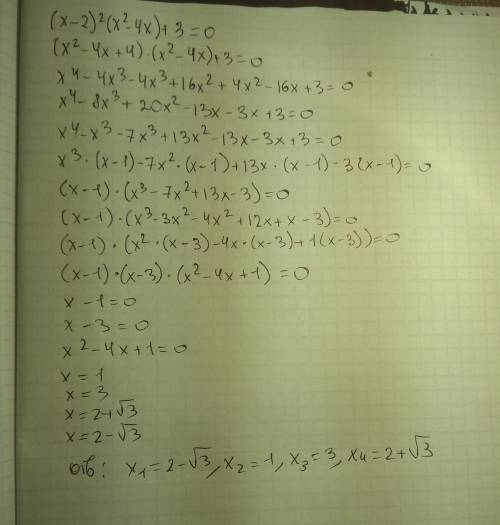 (x-2)²(x²-4x)+3=0
(x²-4x+4)·(x²-4x)+3=0
x⁴-4x³-4x³+16x²+4x²-16x+3=0
x⁴-8x³+20x²-13x-3x+3=0
x⁴-x³-7x³+13x²-13x-3x+3=0
x³·(x-1)-7x²·(x-1)+13x·(x-1)-3(x-1)=0
(x-1)·(x³-7x²+13x-3)=0
(x-1)·(x³-3x²-4x²+12x+x-3)=0
(x-1)·(x²·(x-3)-4x·(x-3)+1(x-3))=0
(x-1)·(x-3)·(x²-4x+1)=0
x-1=0
x-3=0
x²-4x+1=0
x=1
x=3
x=2+√3
x=2-√3
Отв: x₁=2-√3, x₂=1, x₃=3, x₄=2+√3